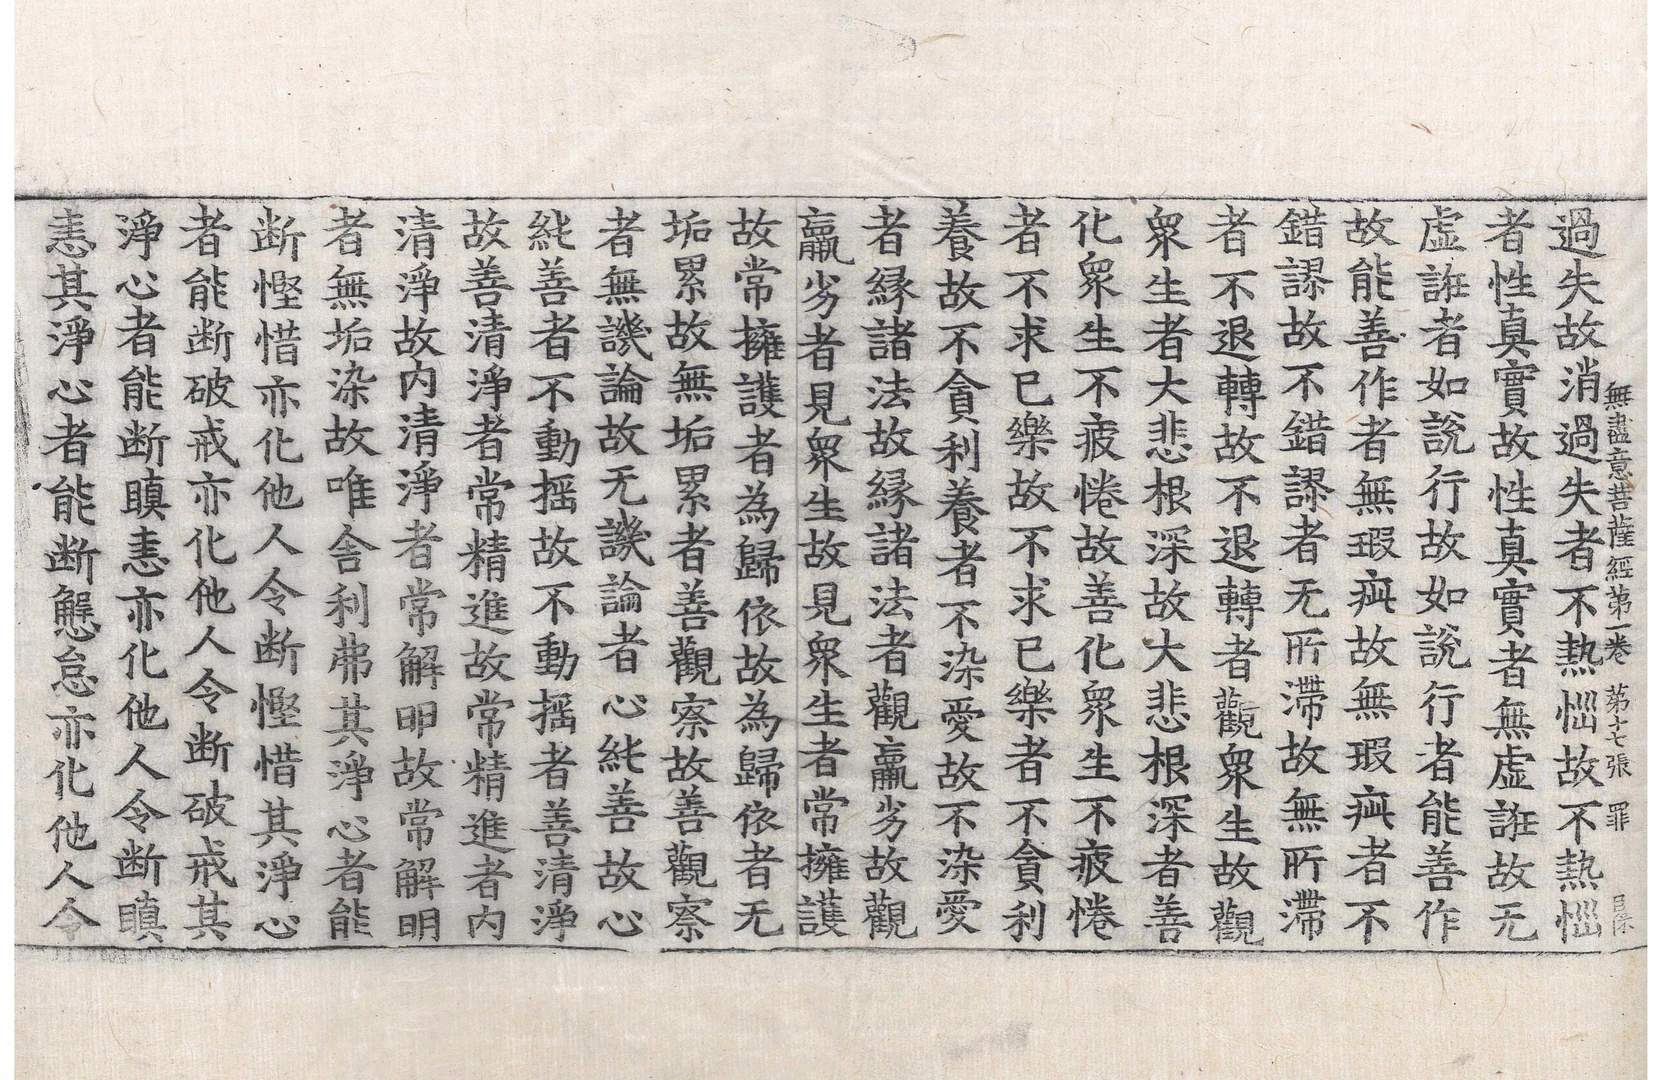 無盡意菩薩經第一卷　第十七張　罪
過失故消過失者不熱惱故不熱惱
者性真實故性真實者無虛誑故无
虛誑者如說行故如說行者能善作
故能善作者無瑕疵故無瑕疵者不
錯謬故不錯謬者无所滯故無所滯
者不退轉故不退轉者觀衆生故觀
衆生者大悲根深故大悲根深者善
化衆生不疲惓故善化衆生不疲惓
者不求已樂故不求已樂者不貪利
養故不貪利養者不染愛故不染愛
者緣諸法故緣諸法者觀羸劣故觀
羸劣者見衆生故見衆生者常擁護
故常擁護者為歸依故為歸依者无
垢累故無垢累者善觀察故善觀察
者無譏論故无譏論者心純善故心
純善者不動搖故不動搖者善清淨
故善清淨者常精進故常精進者內
清淨故內清淨者常解明故常解明
者無垢染故唯舍利弗其淨心者能
断慳惜亦化他人令断慳惜其淨心
者能断破戒亦化他人令断破戒其
淨心者能断瞋恚亦化他人令断瞋
恚其淨心者能断懈怠亦化他人令